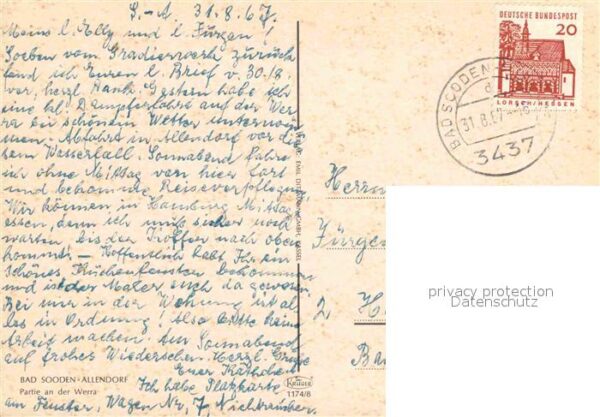 S.-A. 31.8.67.
Meine l. Elly und l. Jürgen!
Soeben vom Gradierwerk zurück
fand ich Euren l. Brief v. 30./8.
vor, herzl. Dank. Gestern habe ich
eine kl. Dampferfahrt auf der Wer
ra bei schönem Wetter unternom
men. Abfahrt in Allendorf vor die
sem Wasserfall. Sonnabend fahre
ich ohne Mittag von hier fort
und bekomme Reiseverpflegung,
Wir können in Hamburg Mittag
essen, denn ich muß sicher noch
warten, bis der Koffer nach oben
kommt. – Hoffentlich habt Ihr ein
schönes Küchenfenster bekommen
und ist der Maler auch da gewesen
Bei mir in der Wohnung ist al
les in Ordnung! Also bitte keine
Arbeit machen. Am Sonnabend
auf frohes Wiedersehen. Herzl. Grüße
Euer Käthchen
Ich habe Platzkarte
am Fenster, Wagen Nr. 7, Nichtraucher.
BAD SOODEN-ALLENDORF
Partie an der Werra
Krüger
1174/8
DEUTSCHE BUNDESPOST
20
LORSCH/HESSEN
BAD SOODEN
31.8.67
3437
Herrn
Jürgen
2 H
Ba
privacy protection
Datenschutz